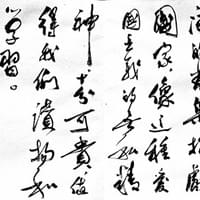 國家，像这種愛
國主義的无私精
神，十分可貴，值
得我們讚揚和
学習。